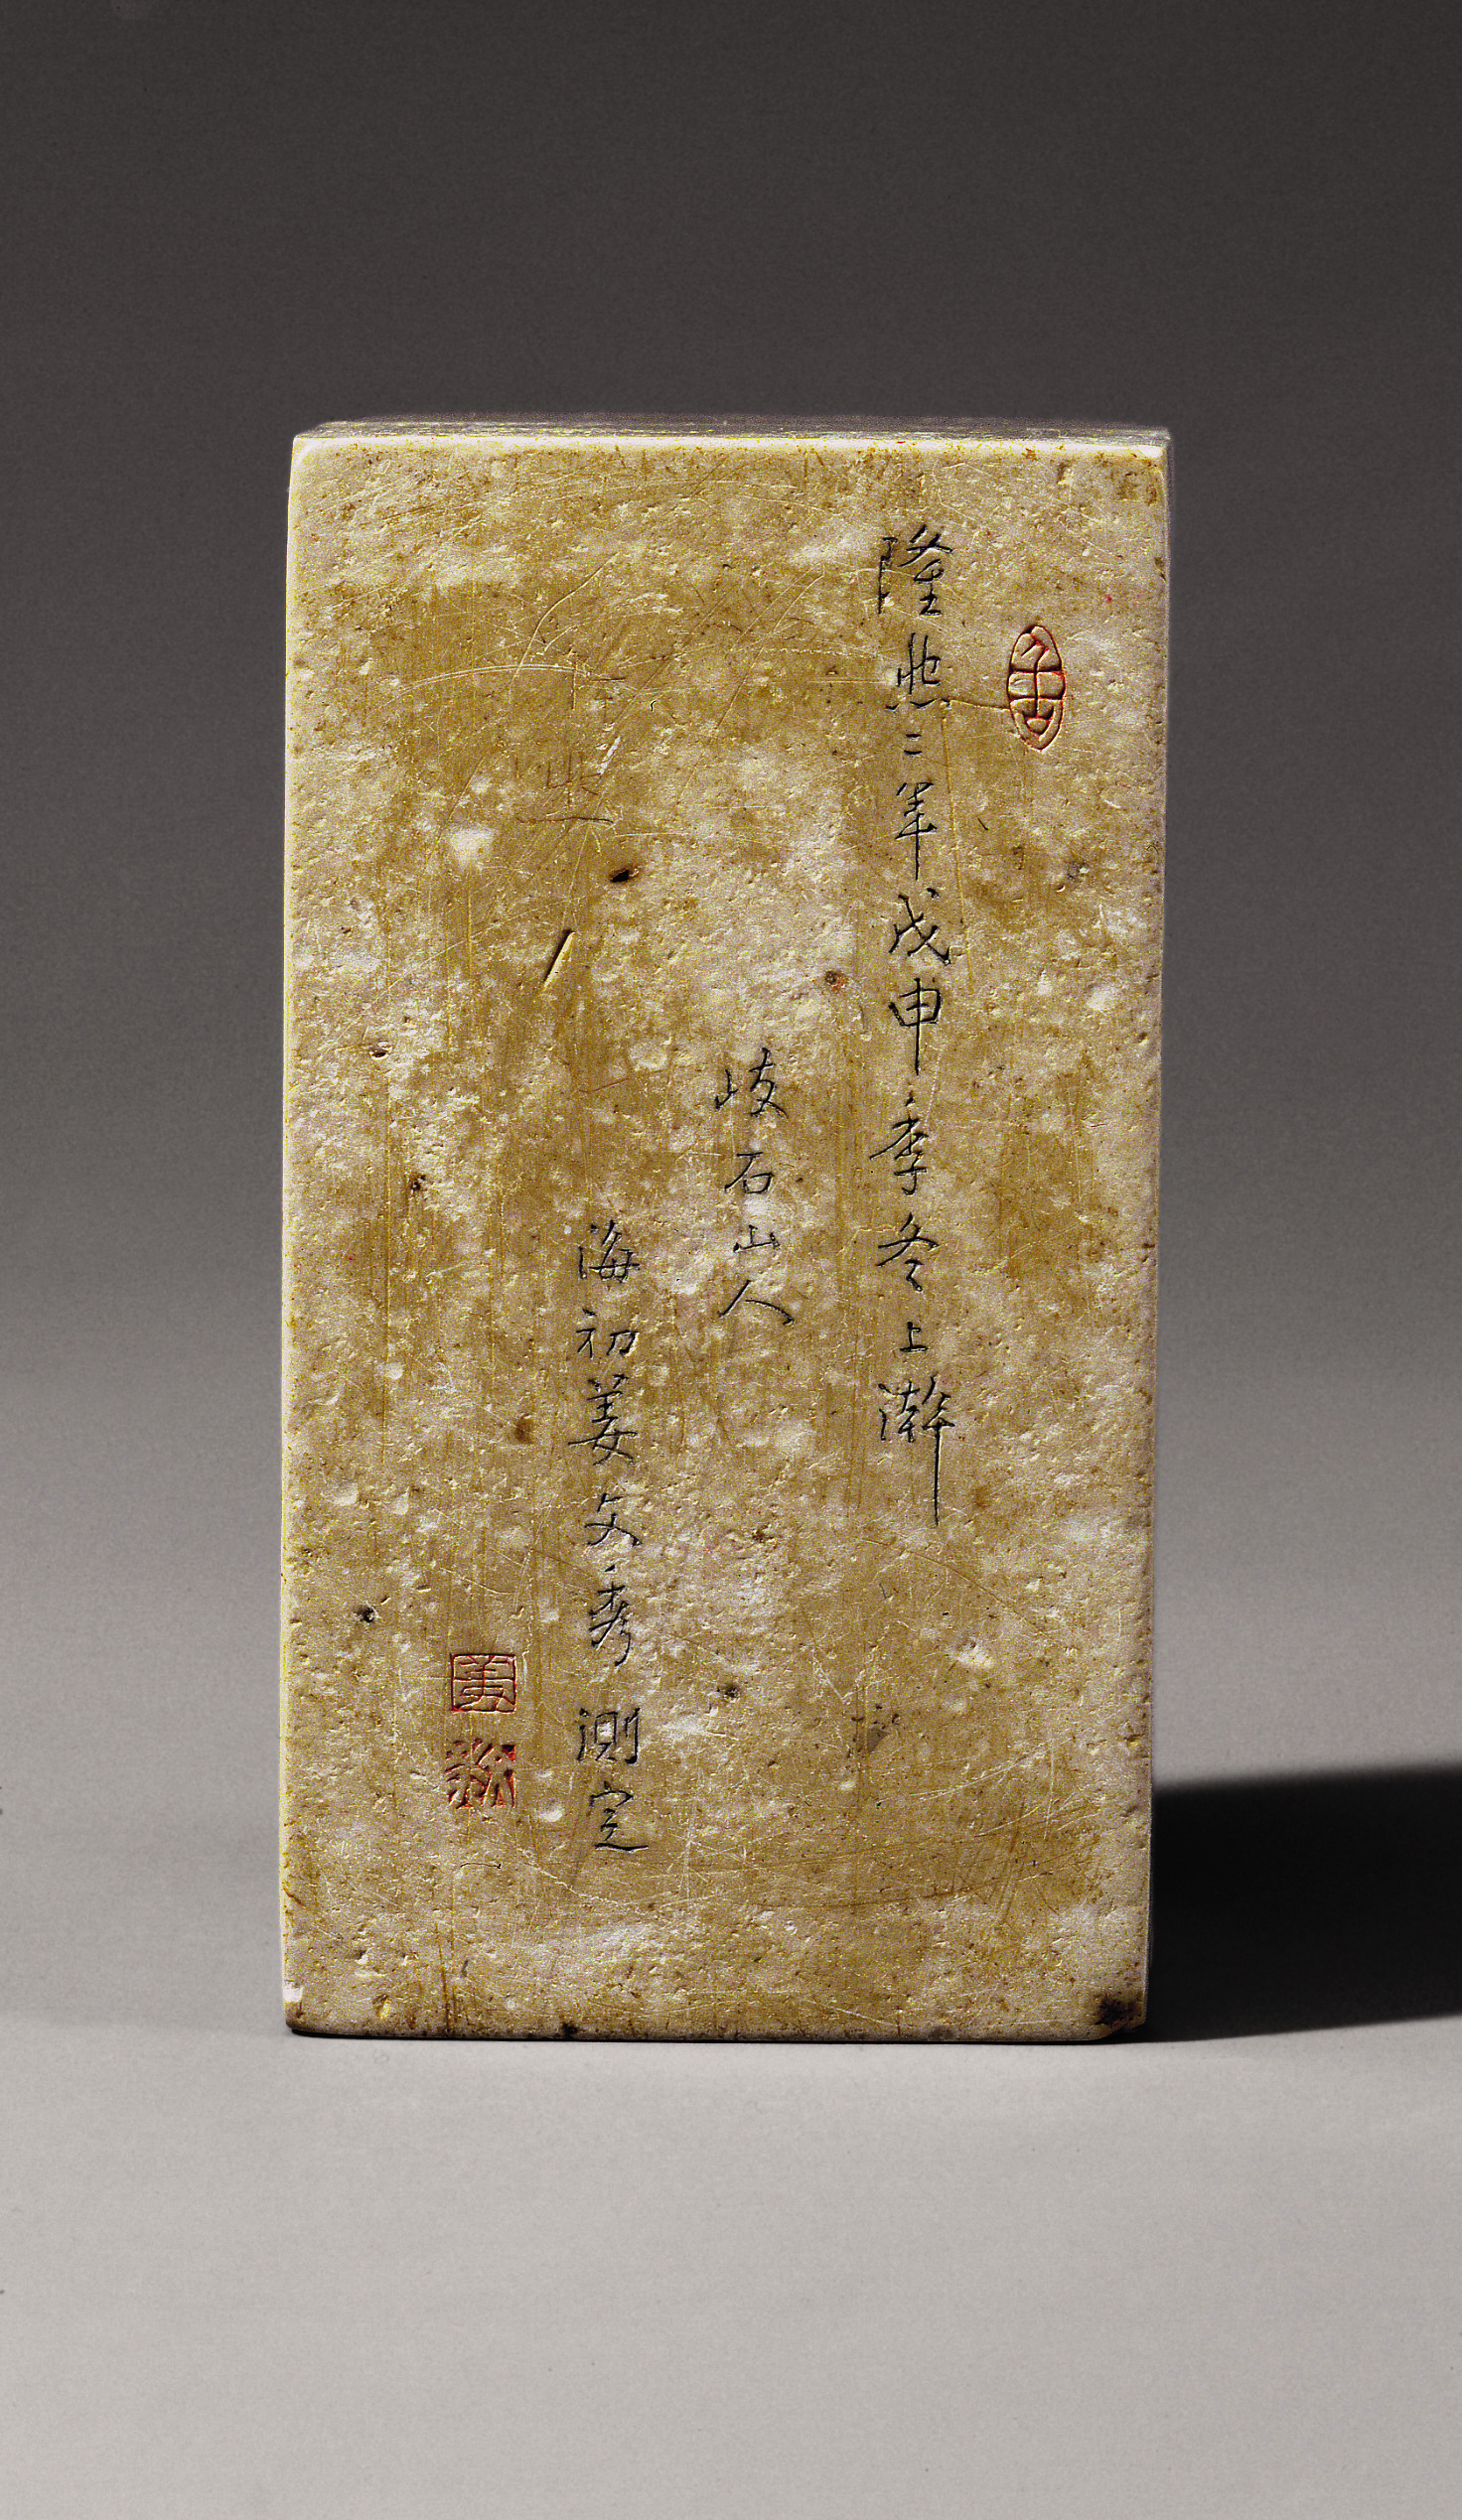 隆熙二年戊申季冬上澣
歧石山人
海初姜文秀 測定